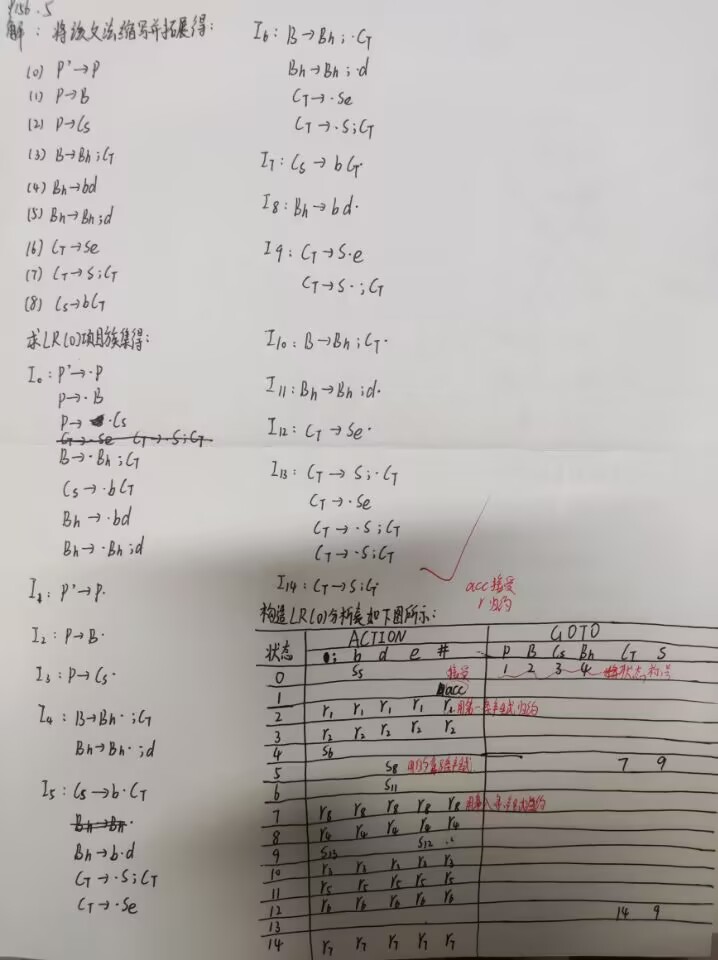 P156.5
解：将该文法缩写并拓展得：
(0) P'→P
(1) P→B
(2) P→Cs
(3) B→Bh;CT
(4) Bh→bd
(5) Bh→Bh;d
(6) CT→Se
(7) CT→S;CT
(8) Cs→bCT
求LR(0)项目族集得：
I0: P'→·P
P→·B
P→·Cs
CT→·Se CT→·S;CT
B→·Bh;CT
Cs→·bCT
Bh→·bd
Bh→·Bh;d
I1: P'→P·
I2: P→B·
I3: P→Cs·
I4: B→Bh·;CT
Bh→Bh·;d
I5: Cs→b·CT
Bh→b·d
CT→·S;CT
CT→·Se
I6: B→Bh;·CT
Bh→Bh;·d
CT→·Se
CT→·S;CT
I7: Cs→bCT·
I8: Bh→bd·
I9: CT→S·e
CT→S·;CT
I10: B→Bh;CT·
I11: Bh→Bh;d·
I12: CT→Se·
I13: CT→S;·CT
CT→·Se
CT→·S;CT
CT→·S;CT
I14: CT→S;CT·
acc接受
r 归约
构造LR(0)分析表如下图所示：
状态 ACTION GOTO
; b d e # P B Cs Bh CT S
0 S5 接受 1 2 3 4 状态
1 acc
2 r1 r1 r1 r1 r1 用第一条产生式归约
3 r2 r2 r2 r2 r2
4 S6
5 S8 7 9
6 S11
7 r8 r8 r8 r8 r8
8 r4 r4 r4 r4 r4
9 S13 S12
10 r3 r3 r3 r3 r3
11 r5 r5 r5 r5 r5
12 r6 r6 r6 r6 r6
13 14 9
14 r7 r7 r7 r7 r7